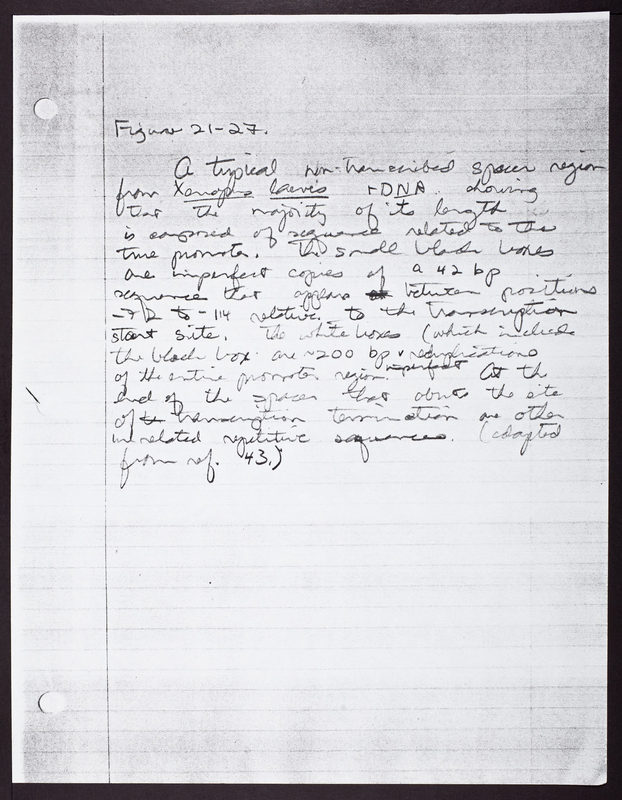 Figure 21-27.
A typical non-transcribed spacer region
from Xenopus laevis rDNA showing
that the majority of its length
is composed of sequence related to the
true promoter. The small black boxes
are imperfect copies of a 42 bp
sequence that appears between positions
-72 to -114 relative to the transcription
start site. The white boxes (which include
the black box are ~200 bp imperfect reduplications
of the entire promoter region. At the
end of the spacer that abuts the site
of transcription termination are other
unrelated repetitive sequences. (adapted
from ref. 43.)